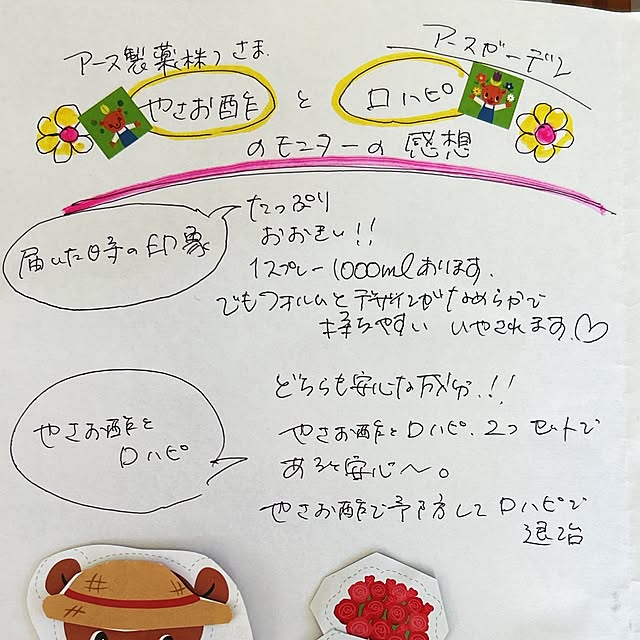 アース製薬(株)さま
アースガーデン
やさお酢 と ロハピ
のモニターの 感想
届いた時の印象
たっぷり
おおきい!!
1スプレー1000mlあります.
でもフォルムとデザインがなめらかで
持ちやすい いやされます.♡
やさお酢と
ロハピ
どちらも安心な成分.!!
やさお酢とロハピ.2つセットで
あると安心〜。
やさお酢で予防してロハピで
退治